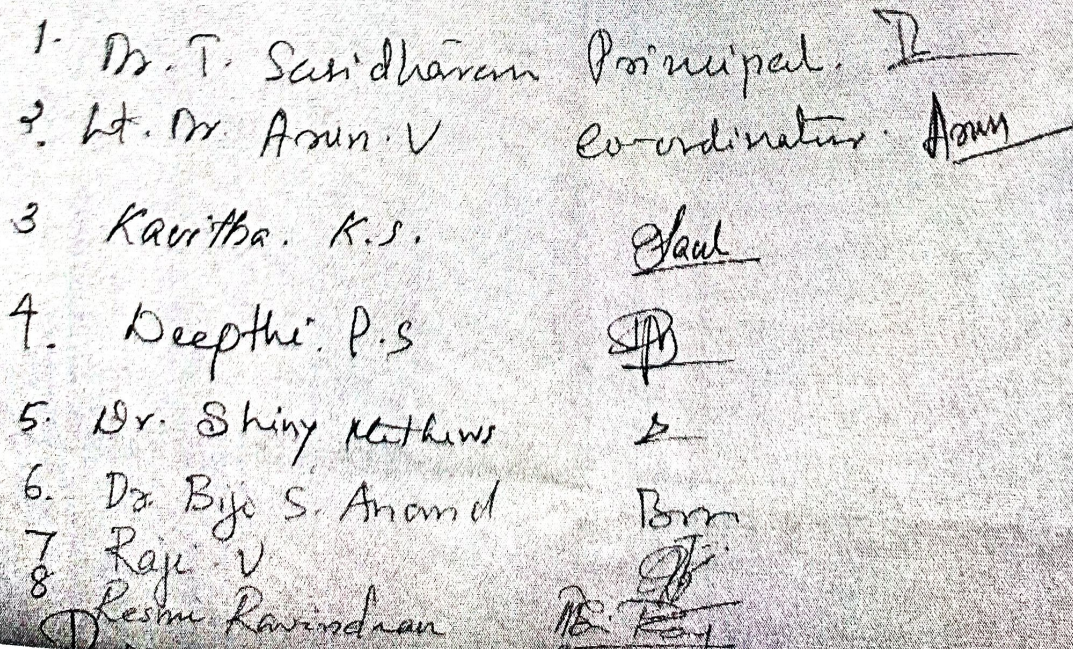 1. Dr. T. Sasidharan Principal.
2. Lt. Dr. Arun. V Co-ordinator. Arun
3 Kavitha. K.S.
4. Deepthi. P.S
5. Dr. Shiny Mathews
6. Dr. Bijo S. Anand
7 Raji. V
8 Resmi Ravindran